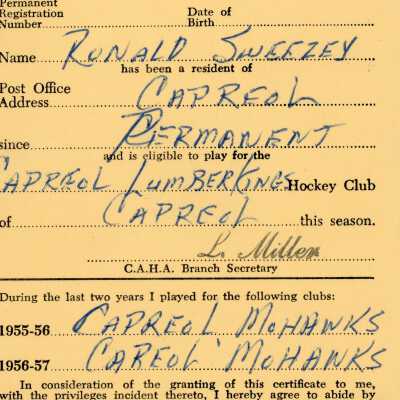 Permanent
Registration Date of
Number Birth
Name RONALD SWEEZEY
has been a resident of
Post Office
Address CAPREOL
since PERMANENT
and is eligible to play for the
CAPREOL LUMBERKINGS Hockey Club
of CAPREOL this season.
L. Miller
C.A.H.A. Branch Secretary
During the last two years I played for the following clubs:
1955-56 CAPREOL MOHAWKS
1956-57 CAREOL MOHAWKS
In consideration of the granting of this certificate to me,
with the privileges incident thereto, I hereby agree to abide by